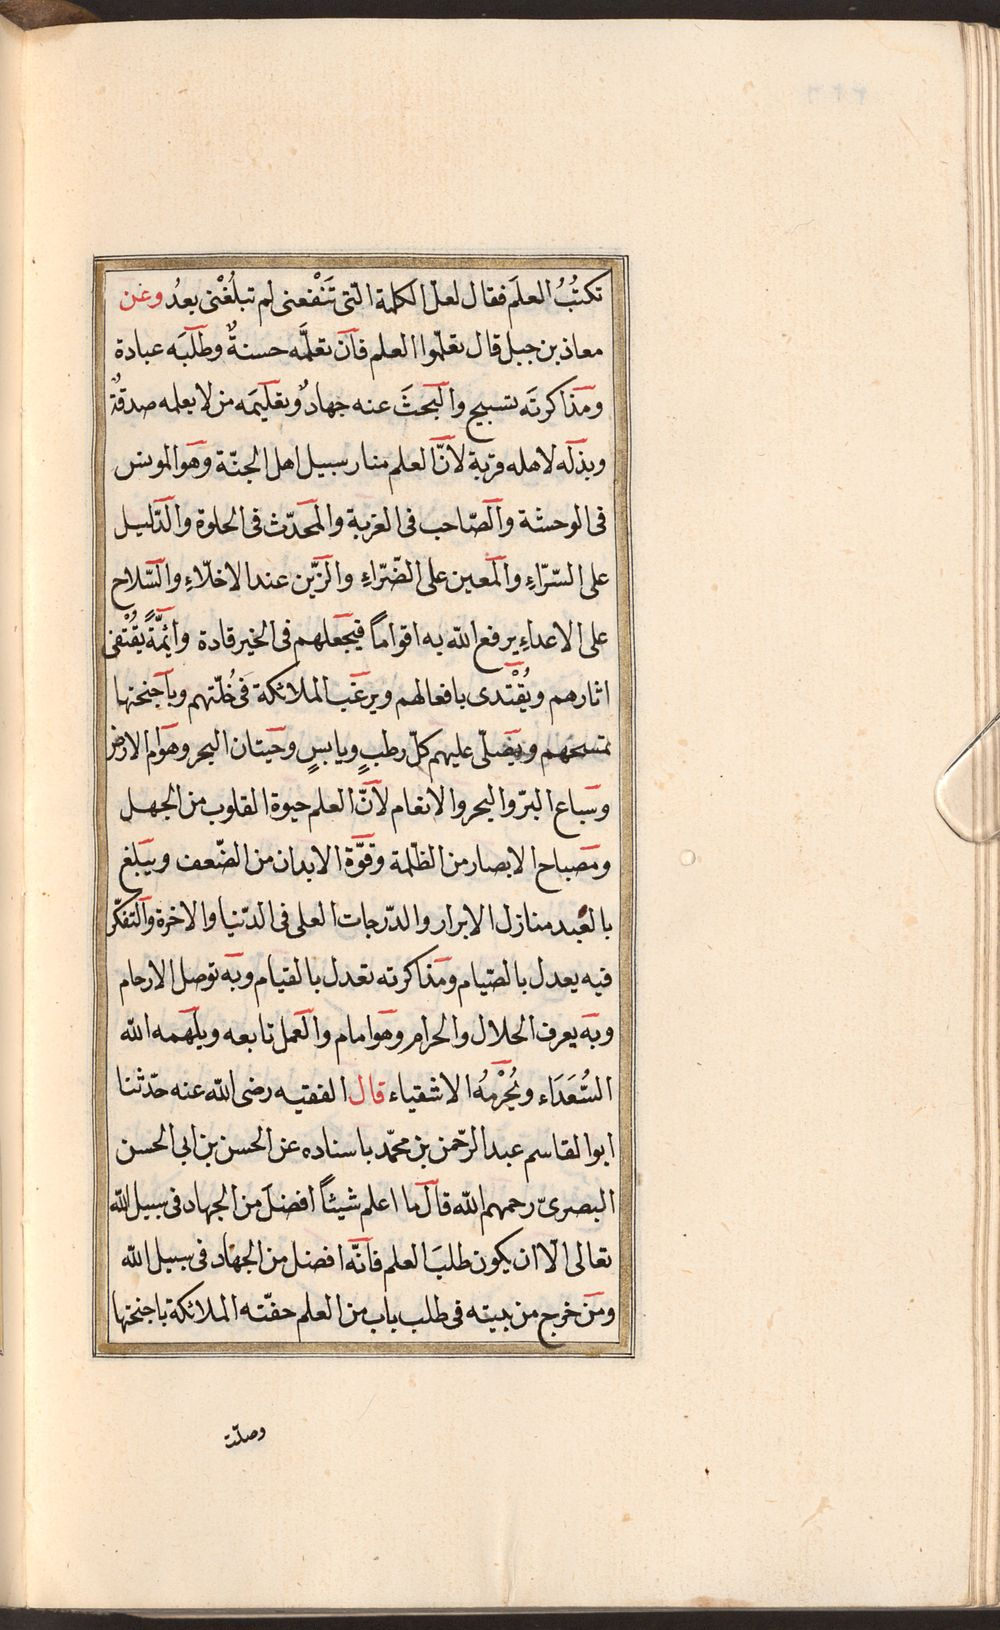 تكتُبُ العلَم فقال لعلّ الكلمة الّتى تَنْفعنى لم تبلُغْنى بعدُ وعن
معاذ بن جبل قال تعلّموا العلم فان تعلَّمه حسنةٌ وطلَبَه عبادة
ومذاكرتَه تسبيح والبحثَ عنه جهادٌ وتعليمَه من لا يعلمه صدقةٌ
وبذله لاهله قربة لانّ العلم منار سبيل اهل الجنّة وهو المونس
فى الوحشة والصّاحب فى الغربة والمحدّث فى الخلوة والدّليل
على السّرّاءِ والمعين على الضّرّاءِ والزّين عند الاخلّاءِ والسّلاح
على الاعداءِ يرفع الله به اقواماً فيجعلهم فى الخير قادة وائمّةً يُقْتفى
اثارهم ويُقْتدى بافعالهم ويرغب الملائكة فى خُلّتهم وباجنحتها
تمسحهم ويصلّى عليهم كلّ رطبٍ ويابسٍ وحيتان البحر وهوام الارض
وسباع البرّ والبحر والانعام لانّ العلم حيوة القلوب من الجهل
ومصباح الابصار من الظّلمة وقوّة الابدان من الضّعف ويبلغ
بالعبد منازل الابرار والدّرجات العلى فى الدّنيا والاخرة والتفكّر
فيه يعدل بالصّيام ومذاكرته تعدل بالقيام وبه توصل الارحام
وبه يعرف الحلال والحرام وهو امام والعمل تابعه ويلهمه الله
السُّعَدَاء ويُحْرَمُهُ الاشقياء قال الفقيه رضى الله عنه حدّثنا
ابو القاسم عبد الرّحمن بن محمّد باسناده عن الحسن بن ابى الحسن
البصرىّ رحمهم الله قال ما اعلم شيئاً افضلَ من الجهاد فى سبيل الله
تعالى الّا ان يكون طلبَ العلم فانّه افضل من الجهاد فى سبيل الله
ومن خرج من بيته فى طلب باب من العلم حفّته الملائكة باجنحتها
وصلّت